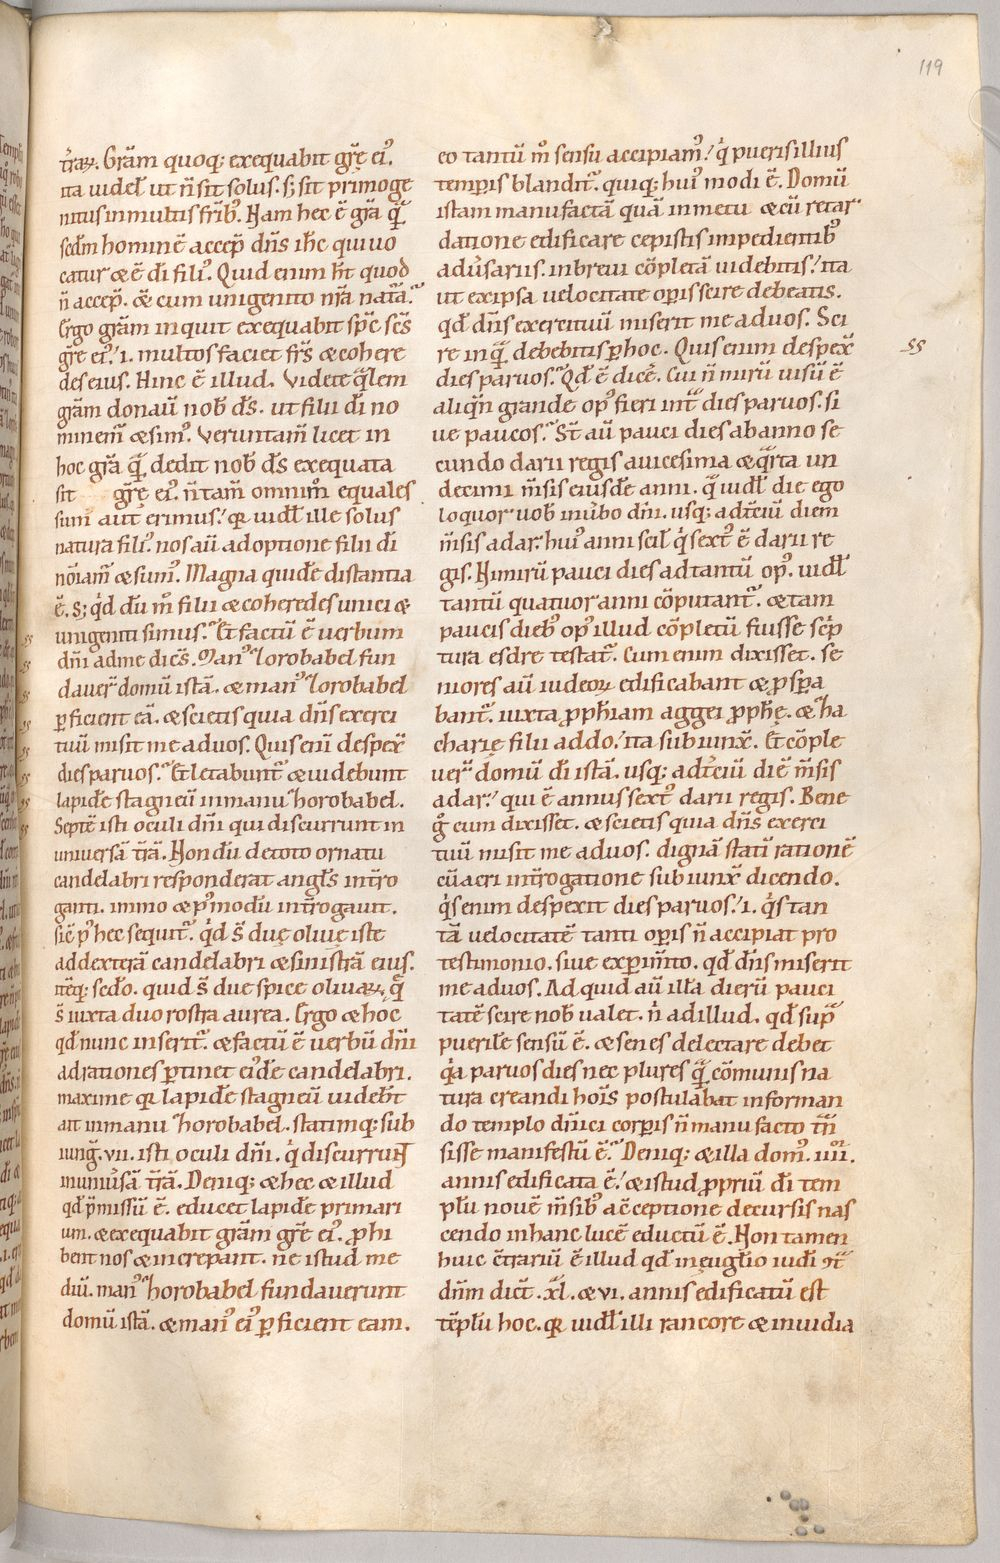 119
t̄rarꝝ. Grām quoq; exequabit grę̄ ei᾽.
ita videł ut n̄ sit solus. s; sit primoge
nitus in multis fr̄ib᾽. Nam hec ē grā q̄
sedm̄ hominē accep̄ dn̄s ih̄c qui uo
catur & ē dī fili᾽. Quid enim h̄t quod
n̄ accep̄. & eum unigenito nr̄a natā.
Ergo grām inquit exequabit sp̄c sc̄s
grę̄ ei᾽. .i. multos faciet fr̄s & cohere
des eius. Hinc ē illud. Videte q̄lem
grām donaū nob̄ ds̄. ut filii dī no
minem̄ & sim᾽. Veruntam̄ licet in
hoc grā q̄ dedit nob̄ ds̄ exequata
sit grę̄ ei᾽. n̄ tam̄ omnim̄ equales
sum᾽ aut erimus. qꝛ uidł ille solus
natura fili᾽. nos aū adoptione filii dī
nōiam̄ & sum᾽. Magna quidē distantia
ē. S; qd̄ dū m̄ filii & coheredes unici &
unigeniti simus. Et factū ē uerbum
dn̄i ad me dicē̄s. Man᾽ zorobabel fun
dauer̄ domū istā. & man᾽ zorobabel
ꝑficient eā. & scietis quia dn̄s exerci
tuū misit me ad uos. Quis eni᾽ despex̄
dies paruos. Et letabunt᾽ & uidebunt
lapidē stagneū in manu zhorobabel.
Septē isti oculi dn̄i qui discurrunt in
universā t̄rā. Non dū de toto ornatu
candelabri responderat angl̄s int̄ro
ganti. immo & p᾽ modū int̄rogauit.
sic̄ p᾽ hec sequit᾽. qd̄ s̄ due̜ oliue̜ iste
ad dexterā candelabri & sinistrā eius.
it̄eq; sedo. quid s̄ due spice oliuarꝝ q̄
s̄ iuxta duo rostra aurea. Ergo & hoc
qd̄ nunc inserit᾽. & factū ē uerbū dn̄i
ad rationes ꝑtinet ei᾽dē candelabri.
maxime qꝛ lapidē stagneū uidebt̄
ait in manu zhorobabel. statimq; sub
iunḡ. vii. isti oculi dn̄i. q̇ discurrunt
in uniu̓sā t̄rā. Deniq; & hec & illud
qd̄ p̄missū ē. educet lapidē primari
um. & exequabit grām grę̄ ei᾽. ꝓhi
bent nos & increpant. ne istud me
diū. man᾽ zhorobabel fundauerunt
domū istā. & man᾽ ei᾽ ꝑficient eam.
eo tantū m̄ sensu accipiam᾽. q̇ pueris illius
temporis blandit᾽. quiq; hui᾽ modi ē. Domū
istam manufactā quā in metu & cū retar
datione edificare cepistis impedientib᾽
adu̓sariis. in breui cōpletā uidebitis. ita
ut ex ipsa velocitate oꝑis scire debeatis.
qd̄ dn̄s exercituū miserit me ad uos. Sci
re inq̄ debebitis ꝑ hoc. Quis enim despex̄
dies paruos. Qd̄ ē dicē᾽. Cui n̄ mirū uisū ē
aliqn̄ grande op᾽ fieri int̄ dies paruos. si
ue paucos. St̄ aū pauci dies ab anno se
cundo darii regis a uicesima & q̄rta un
decimi m̄sis eiusdē anni. q̄ uidł die ego
loquor uob̄ in u̓bo dn̄i. usq; ad t̄ciū diem
m̄sis adar. hui᾽ anni scil̄ q̇ sext᾽ ē darii re
gis. Nimirū pauci dies ad tantū op᾽. uidł
tantū quatuor anni cōputant᾽. & tam
paucis dieb᾽ op᾽ illud cōpletū fuisse sc̄p
tura esdre testat᾽. Cum enim dixisset. se
niores aū iudeoꝝ edificabant & ꝓsꝑa
bant᾽. iuxta ꝓph̄iam aggei ꝓph̄e̜. & zha
charie̜ filii addo. ita subiunx̄. Et cōple
uer̄ domū dī istā. usq; ad t̄ciū diē m̄sis
adar. qui ē annus sext᾽ darii regis. Bene
g᾽ cum dixisset. & scietis quia dn̄s exerci
tuū misit me ad uos. dignā statī rationē
cū acri int̄rogatione subiunx̄ dicendo.
q̇s enim despexit dies paruos. .i. q̇s tan
tā velocitatē tanti oꝑis n̄ accipiat pro
testimonio. siue exꝑim̄to. qd̄ dn̄s miserit
me ad uos. Ad quid aū illā dierū pauci
tatē scire nob̄ ualet. n̄ ad illud. qd̄ sup̄
puerilē sensū ē. & senes delectare debet
q̇a paruos dies nec plures q̄ cōmunis na
tura creandi hoīs postulabat in forman
do templo dn̄ici corꝑis n̄ manu facto t̄n̄
sisse manifestū ē. Deniq; & illa dom᾽. iiii.
annis edificata ē. & istud ꝓpriū dī tem
plū nouē m̄sib᾽ a cc̄eptione decursis nas
cendo in hanc lucē eductū ē. Non tamen
huic c̄trariū ē illud qd̄ in eu̜gl̄io iudī c̄t᾽
dn̄m dict̄. xl. & vi. annis edificatū est
tēplū hoc. qꝛ uidł illi rancore & inuidia